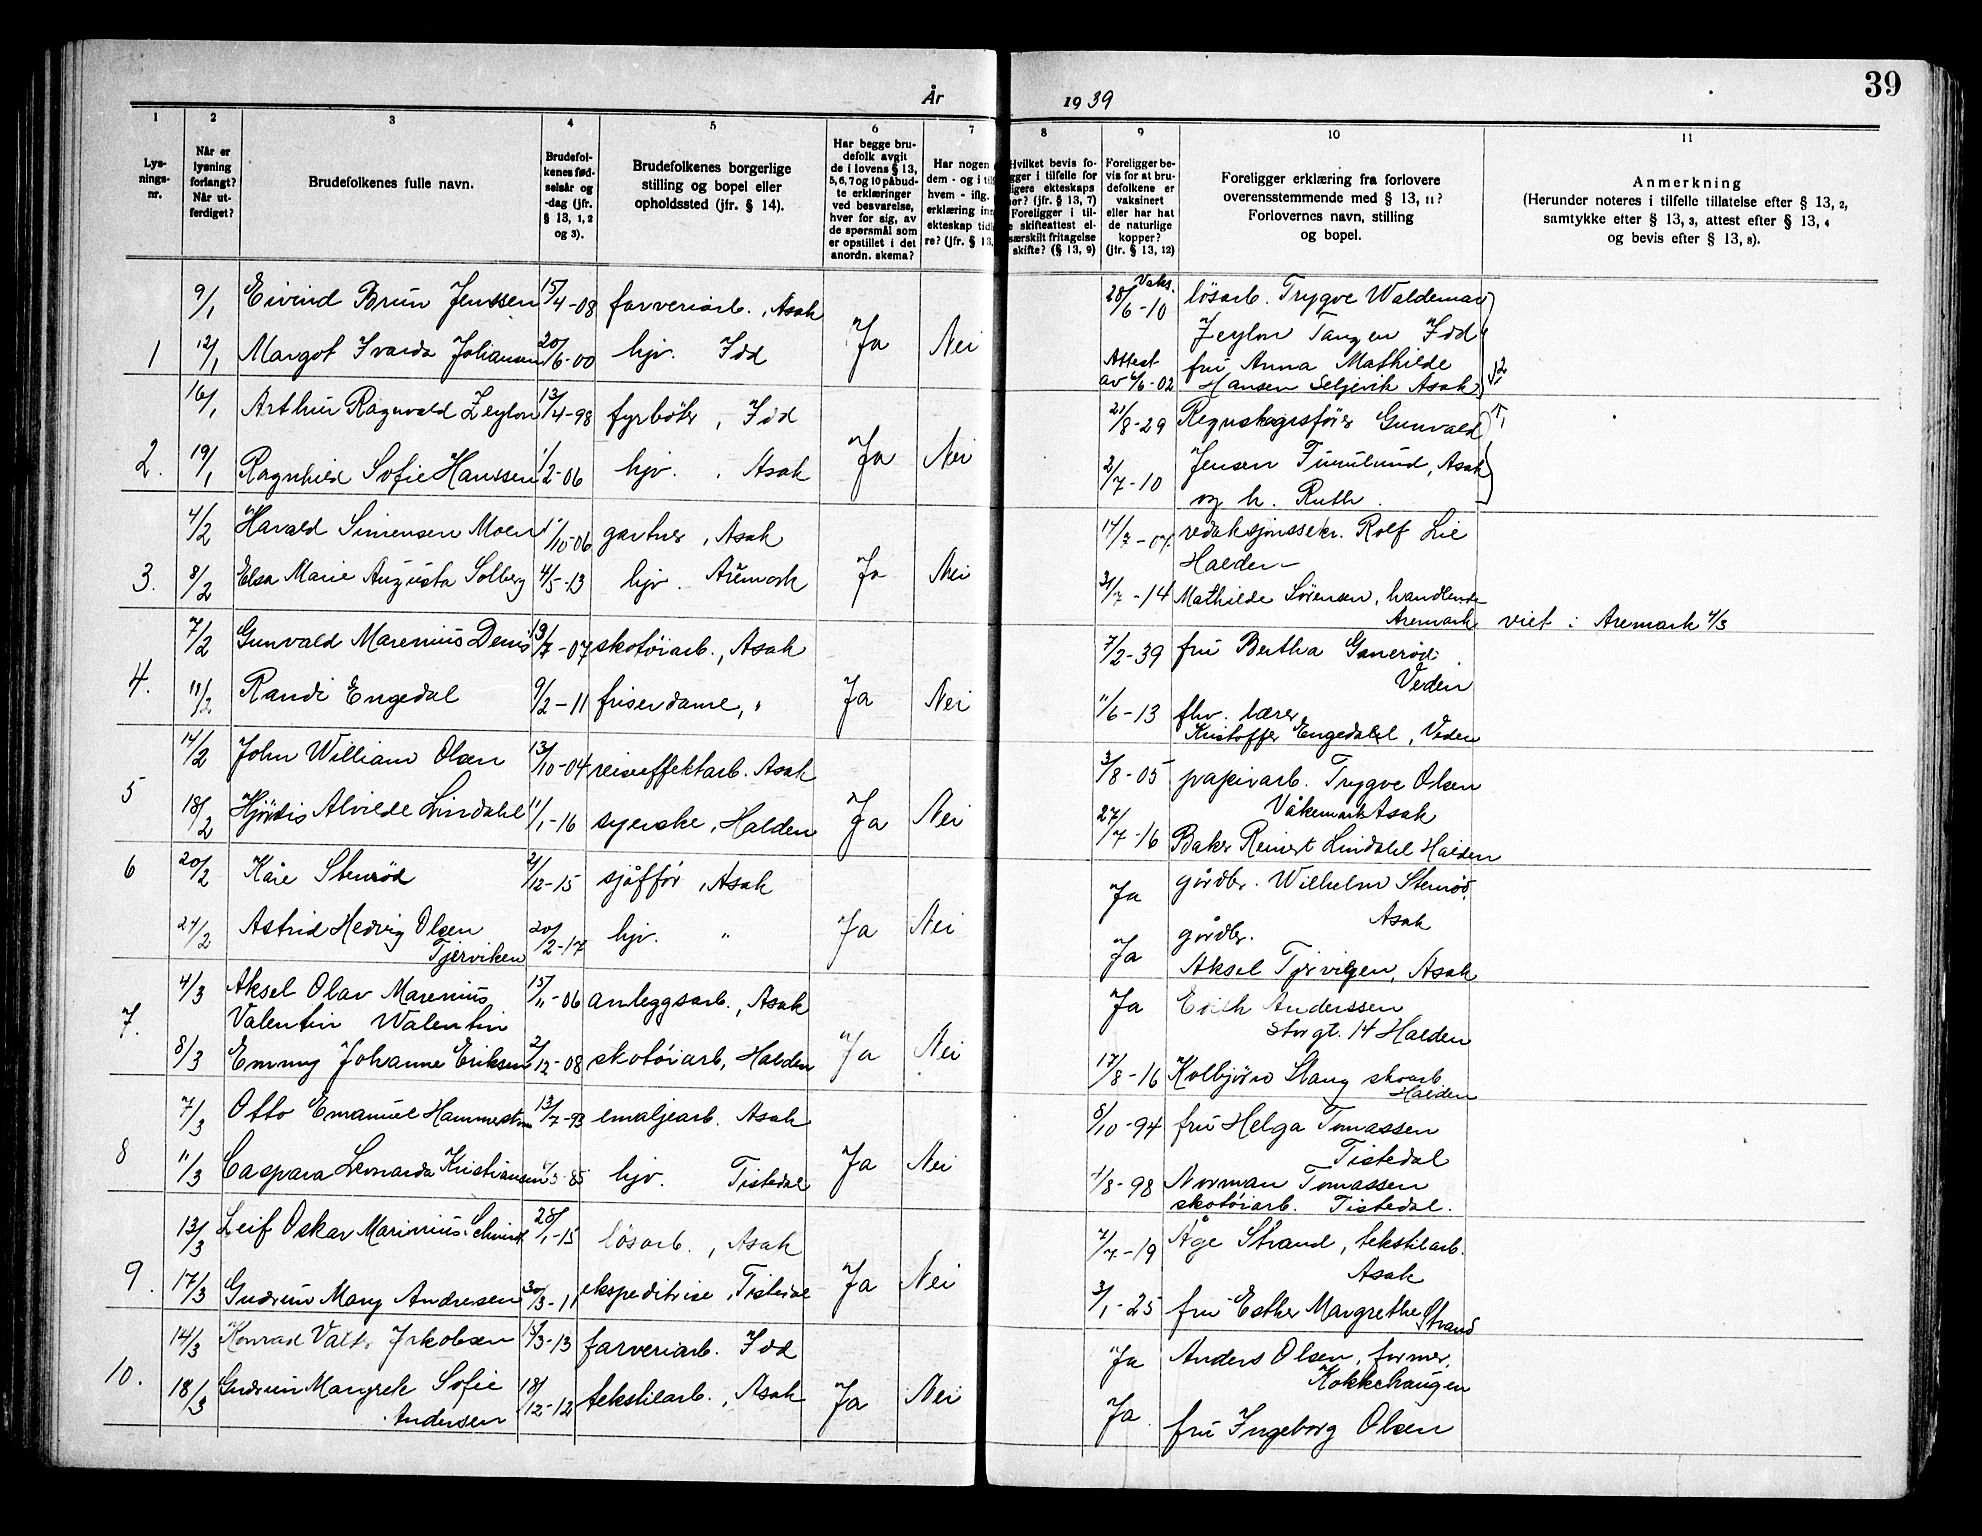 39
År 1939
1 2 3 4 5 6 7 8 9 10 11
Lys-
nings-
nr.
Når er
lysning
forlangt?
Når ut-
ferdiget?
Brudefolkenes fulle navn.
Brudefol-
kenes fød-
selsår og
-dag (jfr.
§ 13, 1, 2
og 3).
Brudefolkenes borgerlige
stilling og bopel eller
opholdssted (jfr. § 14).
Har begge bru-
defolk avgit
de i lovens § 13,
5, 6, 7 og 10 påbud-
te erklæringer
ved besvarelse,
hver for sig, av
de spørsmål som
er opstillet i det
anordn. skema?
Har nogen
dem - og i til
hvem - iflg.
erklæring inn
ekteskap tidl
re? (jfr. § 13,
Hvilket bevis fo-
gger i tilfelle for
ligere ekteskaps
her? (jfr. § 13, 7)
Foreligger i til-
e skifteattest el-
særskilt fritagelse
skifte? (§ 13, 9)
Foreligger be-
vis for at bru-
defolkene er
vaksinert
eller har hat
de naturlige
kopper?
(jfr. § 13, 12)
Foreligger erklæring fra forlovere
overensstemmende med § 13, 11?
Forlovernes navn, stilling
og bopel.
Anmerkning
(Herunder noteres i tilfelle tillatelse efter § 13, 2,
samtykke efter § 13, 3, attest efter § 13, 4
og bevis efter § 13, 8).
9/1 Eivind Brun Jenssen 15/4-08 farveriarb., Asak Vaks. 28/6-10 løsarb. Trygve Waldemar
Zeylon Tangen Idd
1 12/1 Margot Ivarda Johansen 20/6-00 hjv. Idd Ja Nei Attest av 6/6-02 fru Anna Mathilde
Hansen Seljevik Asak
16/1 Arthur Ragnvald Zeylon 13/4-98 fyrbøter, Idd 21/8-29 Regnskapsfører Gunvald
Jensen Furulund, Asak
2. 19/1 Ragnhild Sofie Hanssen 1/2-06 hjv., Asak Ja Nei 2/7-10 og h. Ruth
4/2 Harald Simensen Moen 1/10-06 gartner, Asak 17/7-07 redaksjonssekr. Rolf Lie
Halden
3. 8/2 Elsa Marie Augusta Solberg 4/5-13 hjv. Aremark Ja Nei 31/7-14 Mathilde Sørensen, handlende
Aremark viet i Aremark 4/3
7/2 Gunvald Marenius Denis 19/7-07 skotøiarb., Asak 7/2-39 fru Bertha Ganerød
Veden
4. 11/2 Randi Engedal 9/2-11 friserdame, " Ja Nei 11/6-13 fhv. lærer
Kristoffer Engedahl, Veden
14/2 John William Olsen 13/10-04 reiseeffektarb. Asak 3/8-05 papirarb. Trygve Olsen
Våkemark Asak
5 18/2 Hjørdis Alvilde Lindahl 11/1-16 syerske, Halden Ja Nei 27/7-16 Baker Reinert Lindahl Halden
6 20/2 Kåre Stenrød 2/12-15 sjåffør, Asak Ja gårdbr. Wilhelm Stenrød,
Asak
24/2 Astrid Hedvig Olsen
Tjerviken 20/2-17 hjv. " Ja Nei Ja gårdbr.
Aksel Tjerviken, Asak
4/3 Aksel Olav Marenius
Valentin Walentin 15/11-06 anleggsarb., Asak Ja Edith Anderssen
Storgt. 14 Halden
7. 8/3 Emmy Johanne Eriksen 2/12-08 skotøiarb, Halden Ja Nei 17/8-16 Kolbjørn Stang skoarb.
Halden
7/3 Otto Emanuel Hammerstrøm 13/7-93 emaljearb. Asak 8/10-94 fru Helga Tomassen
Tistedal
8 11/3 Caspara Leonarda Kristiansen 85 hjv. Tistedal Ja Nei 1/8-98 Norman Tomassen
skotøiarb. Tistedal.
13/3 Leif Oskar Marinius 28/1-15 løsarb., Asak 7/7-19 Åge Strand, tekstilarb.
Asak
9. 17/3 Gudrun Mary Andresen 30/3-11 ekspeditrise, Tistedal Ja Nei 3/1-25 fru Esther Margrethe Strand
14/3 Konrad Jakobsen 15/3-13 farveriarb. Idd Ja Anders Olsen, former,
Kokkehaugen
10. 18/3 Gudrun Margrete Sofie
Andersen 18/12-12 tekstilarb., Asak Ja Nei Ja. fru Ingeborg Olsen